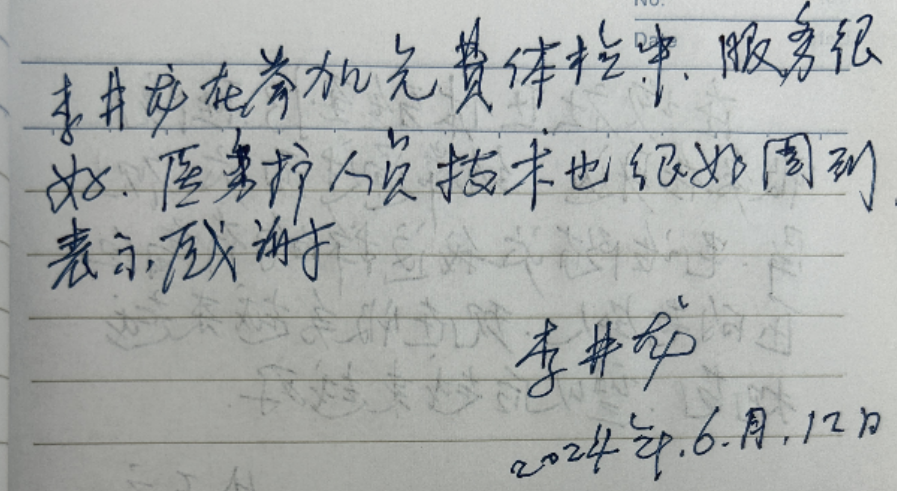 No.
Date
李井龙在参加免费体检中、服务很
好．医务护人员技术也很好周到，
表示感谢
李井龙
2024年.6.月.12日